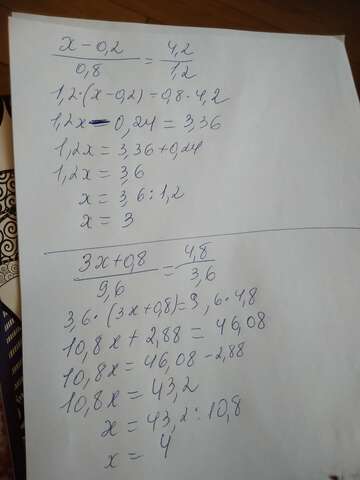 x - 0,2 / 0,8 = 4,2 / 1,2
1,2·(x-0,2)=0,8·4,2
1,2x - 0,24 = 3,36
1,2x = 3,36+0,24
1,2x = 3,6
x = 3,6:1,2
x = 3
3x+0,8 / 9,6 = 4,8 / 3,6
3,6·(3x+0,8)=9,6·4,8
10,8x + 2,88 = 46,08
10,8x = 46,08-2,88
10,8x = 43,2
x = 43,2:10,8
x = 4